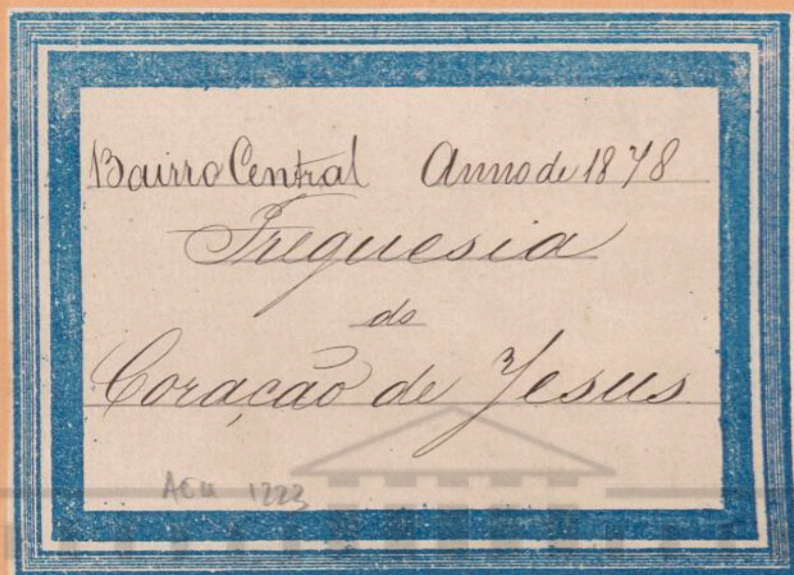 Bairro Central Anno de 1878
Freguesia
do
Coração de Jesus
ACU 1223